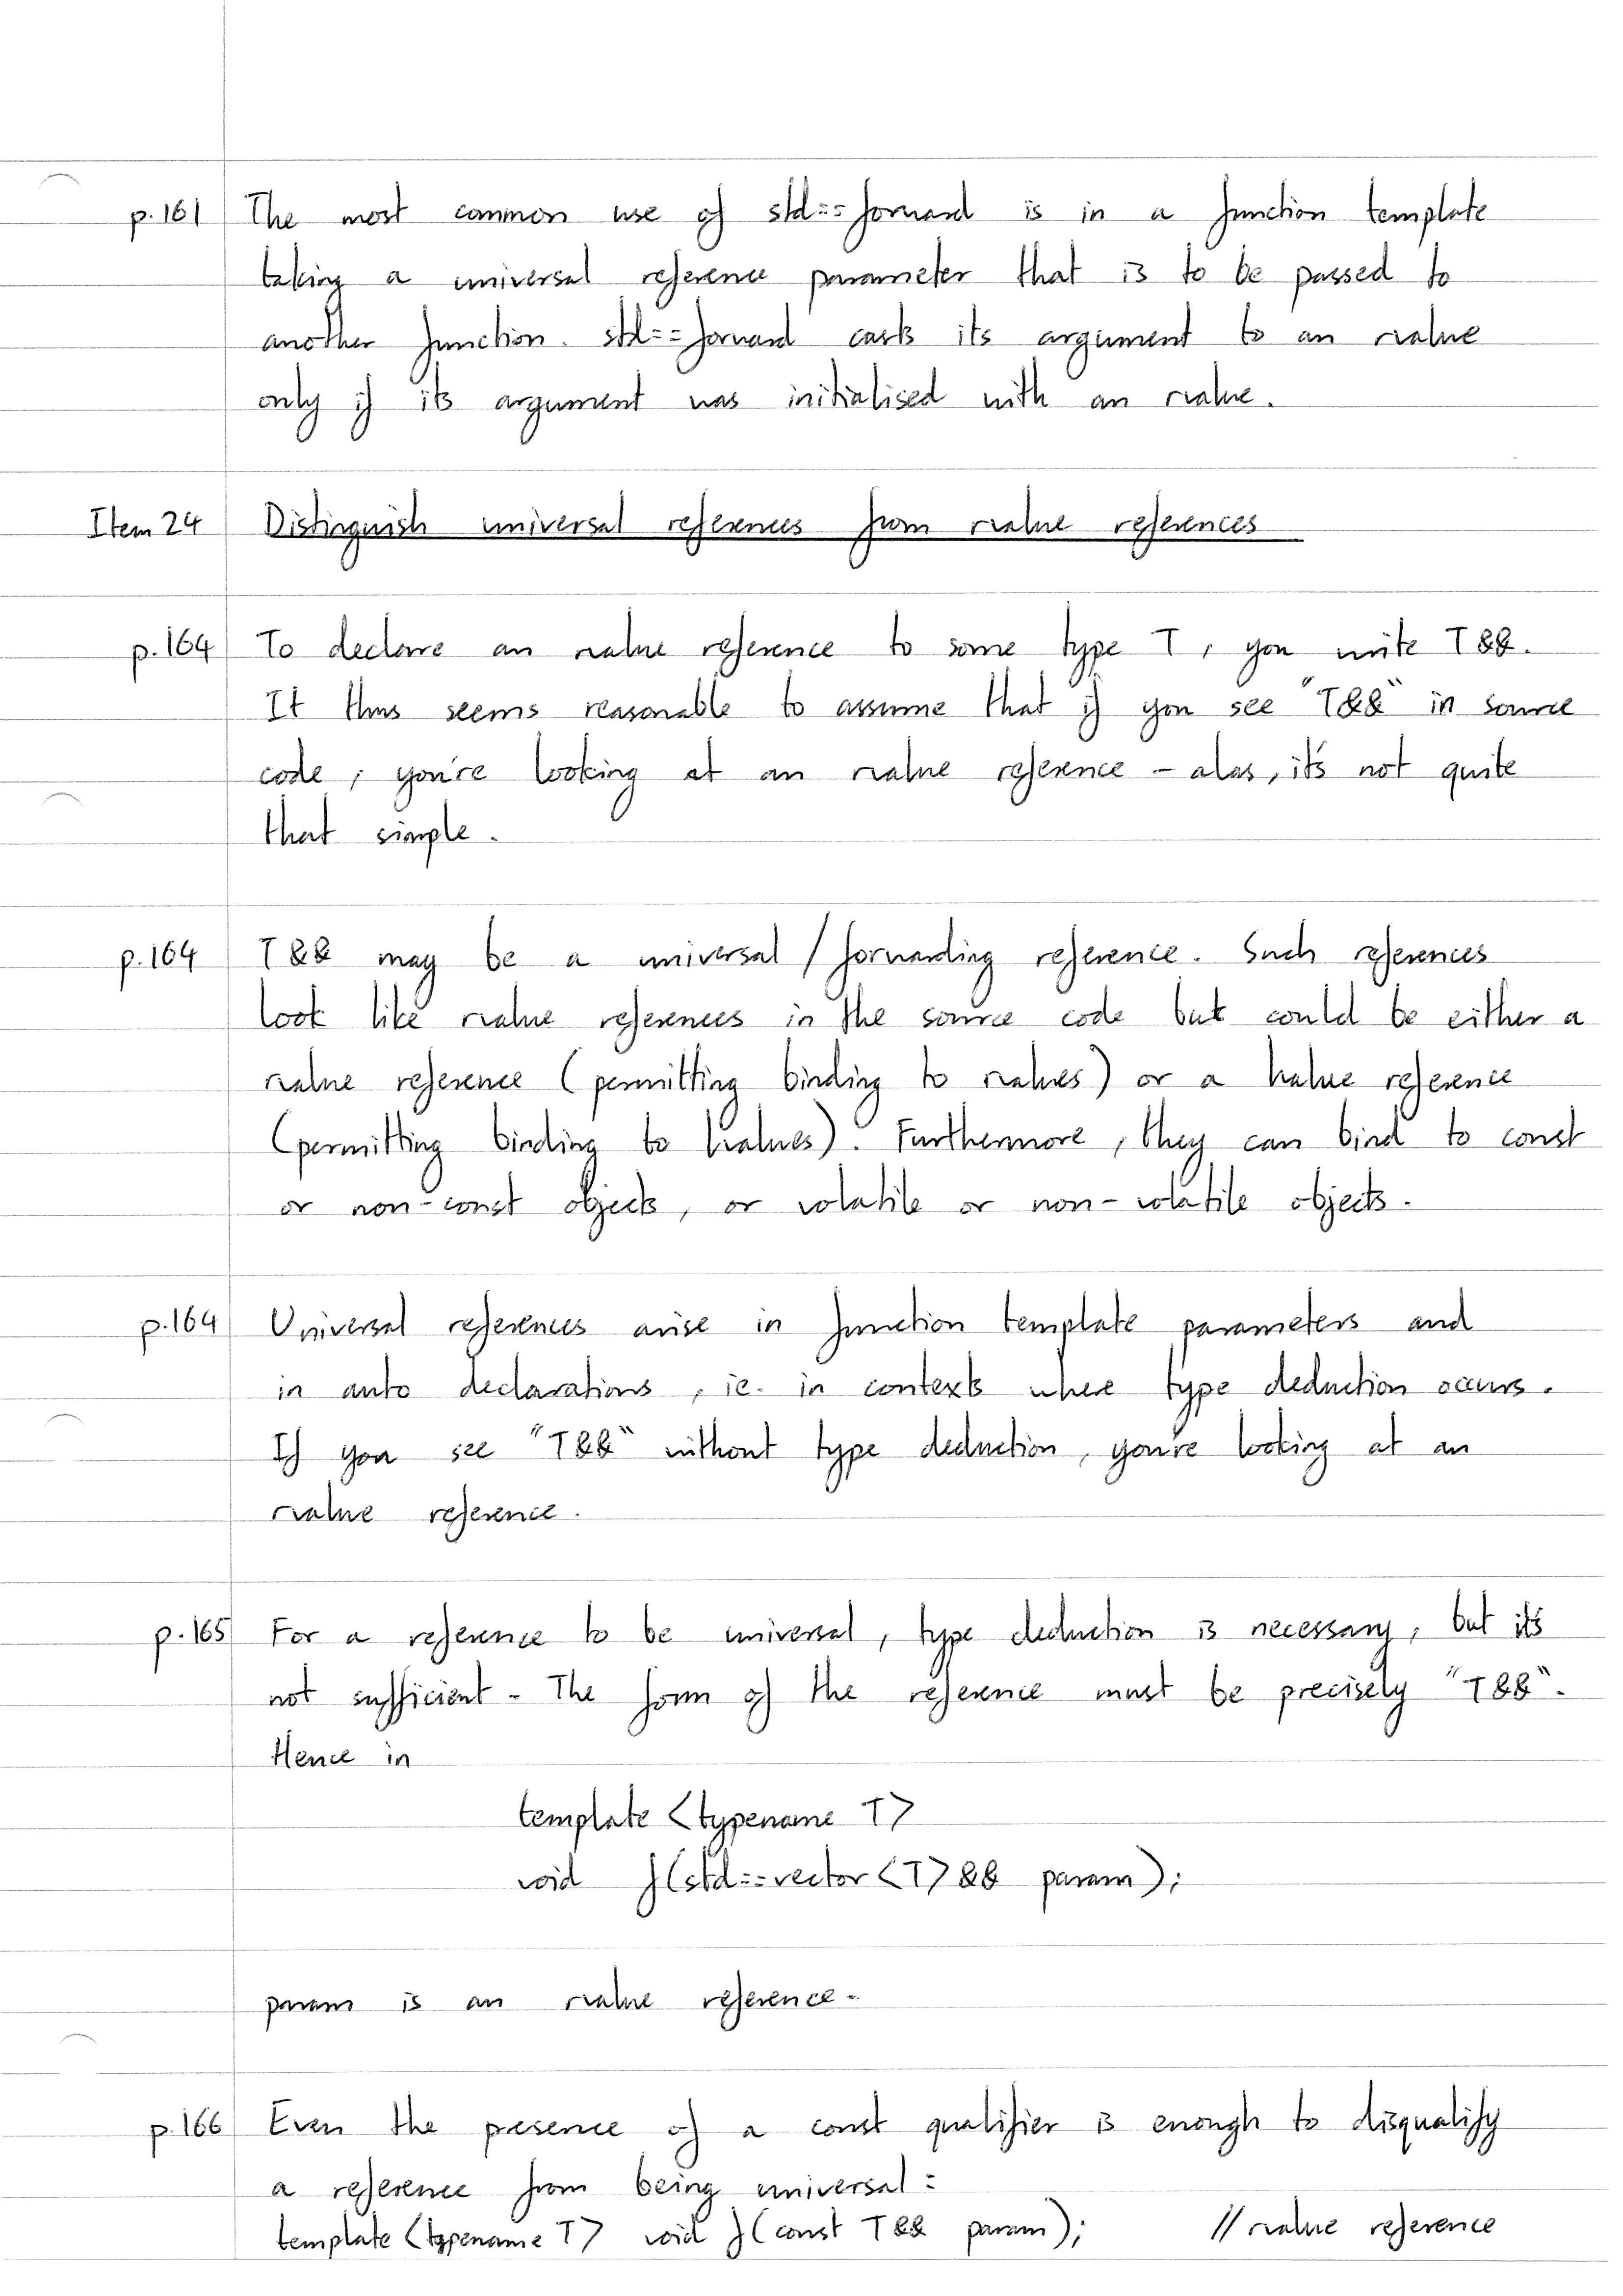 p.161 The most common use of std::forward is in a function template
taking a universal reference parameter that is to be passed to
another function. std::forward casts its argument to an rvalue
only if its argument was initialised with an rvalue.
Item 24 Distinguish universal references from rvalue references
p.164 To declare an rvalue reference to some type T, you write T&&.
It thus seems reasonable to assume that if you see "T&&" in source
code, you're looking at an rvalue reference - alas, it's not quite
that simple.
p.164 T&& may be a universal / forwarding reference. Such references
look like rvalue references in the source code but could be either a
rvalue reference (permitting binding to rvalues) or a lvalue reference
(permitting binding to lvalues). Furthermore, they can bind to const
or non-const objects, or volatile or non-volatile objects.
p.164 Universal references arise in function template parameters and
in auto declarations, ie. in contexts where type deduction occurs.
If you see "T&&" without type deduction, you're looking at an
rvalue reference.
p.165 For a reference to be universal, type deduction is necessary, but it's
not sufficient. The form of the reference must be precisely "T&&".
Hence in
template <typename T>
void f(std::vector<T>&& param);
param is an rvalue reference.
p.166 Even the presence of a const qualifier is enough to disqualify
a reference from being universal:
template <typename T> void f(const T&& param); // rvalue reference